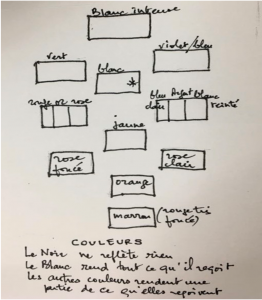 Blanc intense
vert
violet/bleu
blanc
*
rouge or rose
bleu
clair
blanc
teinté
jaune
rose
foncé
rose
clair
orange
marron (rouge très
foncé)
COULEURS
Le Noir ne reflète rien
Le Blanc rend tout ce qu'il reçoit
les autres couleurs rendent une
partie de ce qu'elles reçoivent